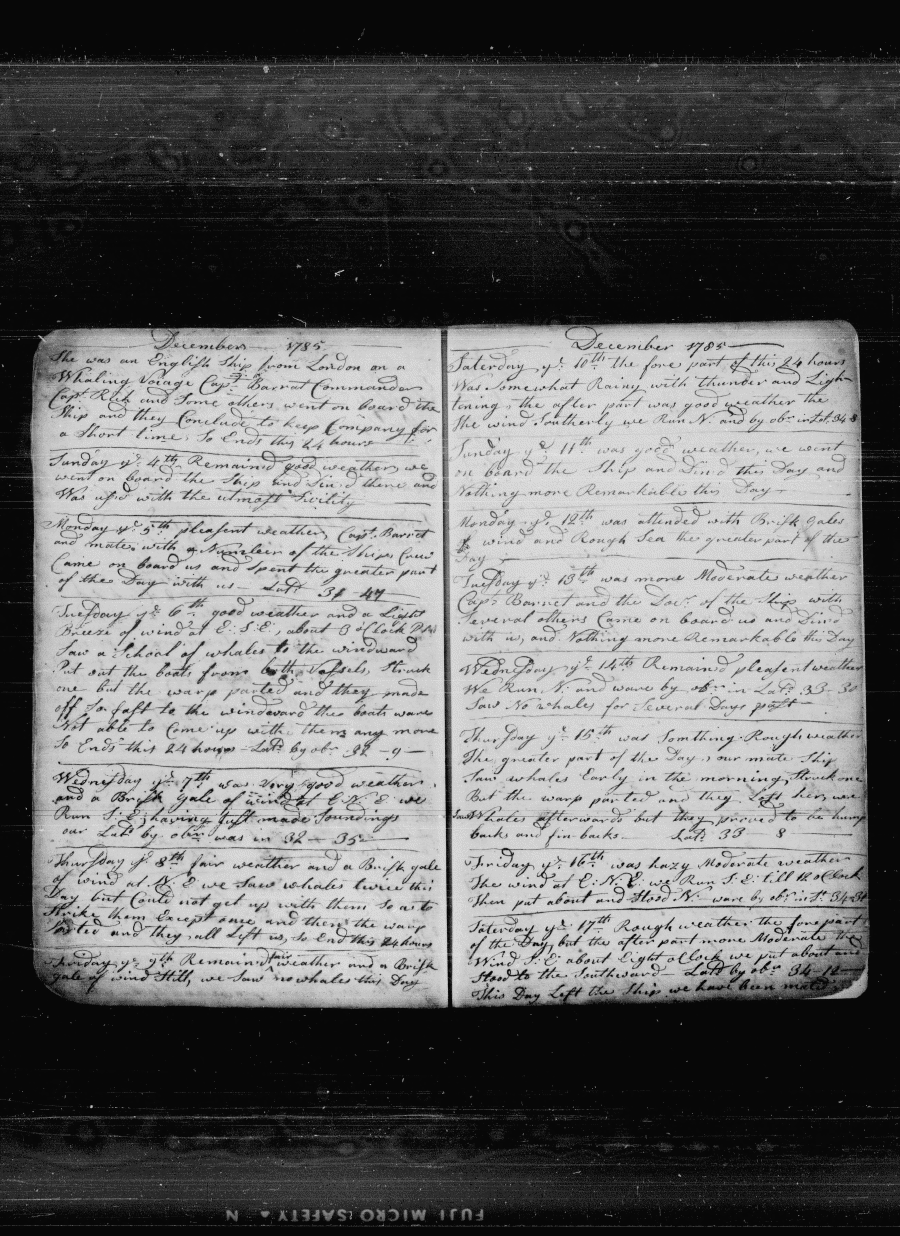 December 1785
She was an English Ship from London on a
Whaling Voiage Capt. Barrat Commander
Capt. and Some others went on board the
Ship and they Conclude to keep Company for
a Short time, So Ends this 24 hours
Sunday ye. 4th Remain'd good weather, we
went on board the Ship and Din'd there and
Was us'd with the utmost Sivility
Monday ye. 5th pleasent weather, Capt. Barret
and mates with a Number of the Ships Crew
Came on board us and Spent the greater part
of the Day with us — Latt. 31 - 47
Tuesday ye. 6th good weather and a Light
Breeze of wind at E: S: E, about 3 o'Clock P.M
Saw a School of whales to the windward
Put out the boats from both Vessels, Struck
one but the warp parted and they made
off So fast to the windward the boats ware
Not able to Come up with them any more
So Ends this 24 hours Latt. by obr. 32 - 9 —
Wednesday ye. 7th was Very good weather
and a Brisk Gale of wind at E: N: E we
Run S: E having Just made Soundings
our Latt. by obr. was in 32 - 35
Thursday ye. 8th fair weather and a Brisk gale
of wind at N: E we Saw whales twice this
Day but Could not get up with them So as to
Strike them Except once and then the warp
Parted and they all Left us, So End this 24 hours
ye. 9th Remain'd fair weather and a Brisk
gale of wind Still, we Saw no whales this Day
December 1785
Saterday ye. 10th the fore part of this 24 hours
Was Somewhat Rainy with thunder and Ligh-
tening, the after part was good weather the
the wind Southerly we Run N. and by obr. in Lat. 34-8
Sunday ye. 11th was good weather, we went
on board the Ship and Din'd this Day and
Nothing more Remarkable this Day —
Monday ye. 12th was attended with Brisk gales
of wind and Rough Sea the greater part of the
Day —
Tuesday ye. 13th was more Moderate weather
Capt. Barret and the Doct. of the Ship with
Several others Came on board us and Din'd
with us, and Nothing more Remarkable this Day
Wednesday ye. 14th Remain'd pleasent weather
We Run N. and ware by obr. in Latt. 33 - 30
Saw No whales for Several Days past —
Thursday ye. 15th was Somthing Rough weather
The greater part of the Day, our mate Ship
Saw whales Early in the morning, Struck one
But the warp parted and they Left her, we
Saw Whales afterwards but they proved to be hump
backs and fin backs. Latt. 33 - 8
Friday ye. 16th was hazy Moderate weather
The wind at E: N: E: we Run S: E: till 12 o'Clock
Then put about and Stood N. ware by obr. in Lt. 34-34
Saterday ye. 17th Rough weather the fore part
of the Day, but the after part more Moderate the
Wind S: E about Eight o'Clock we put about and
Stood to the Southward Latt. by obr. 34 - 12 —
This Day Left the Ship we have been mated
FUJI MICRO SAFETY ▲ N